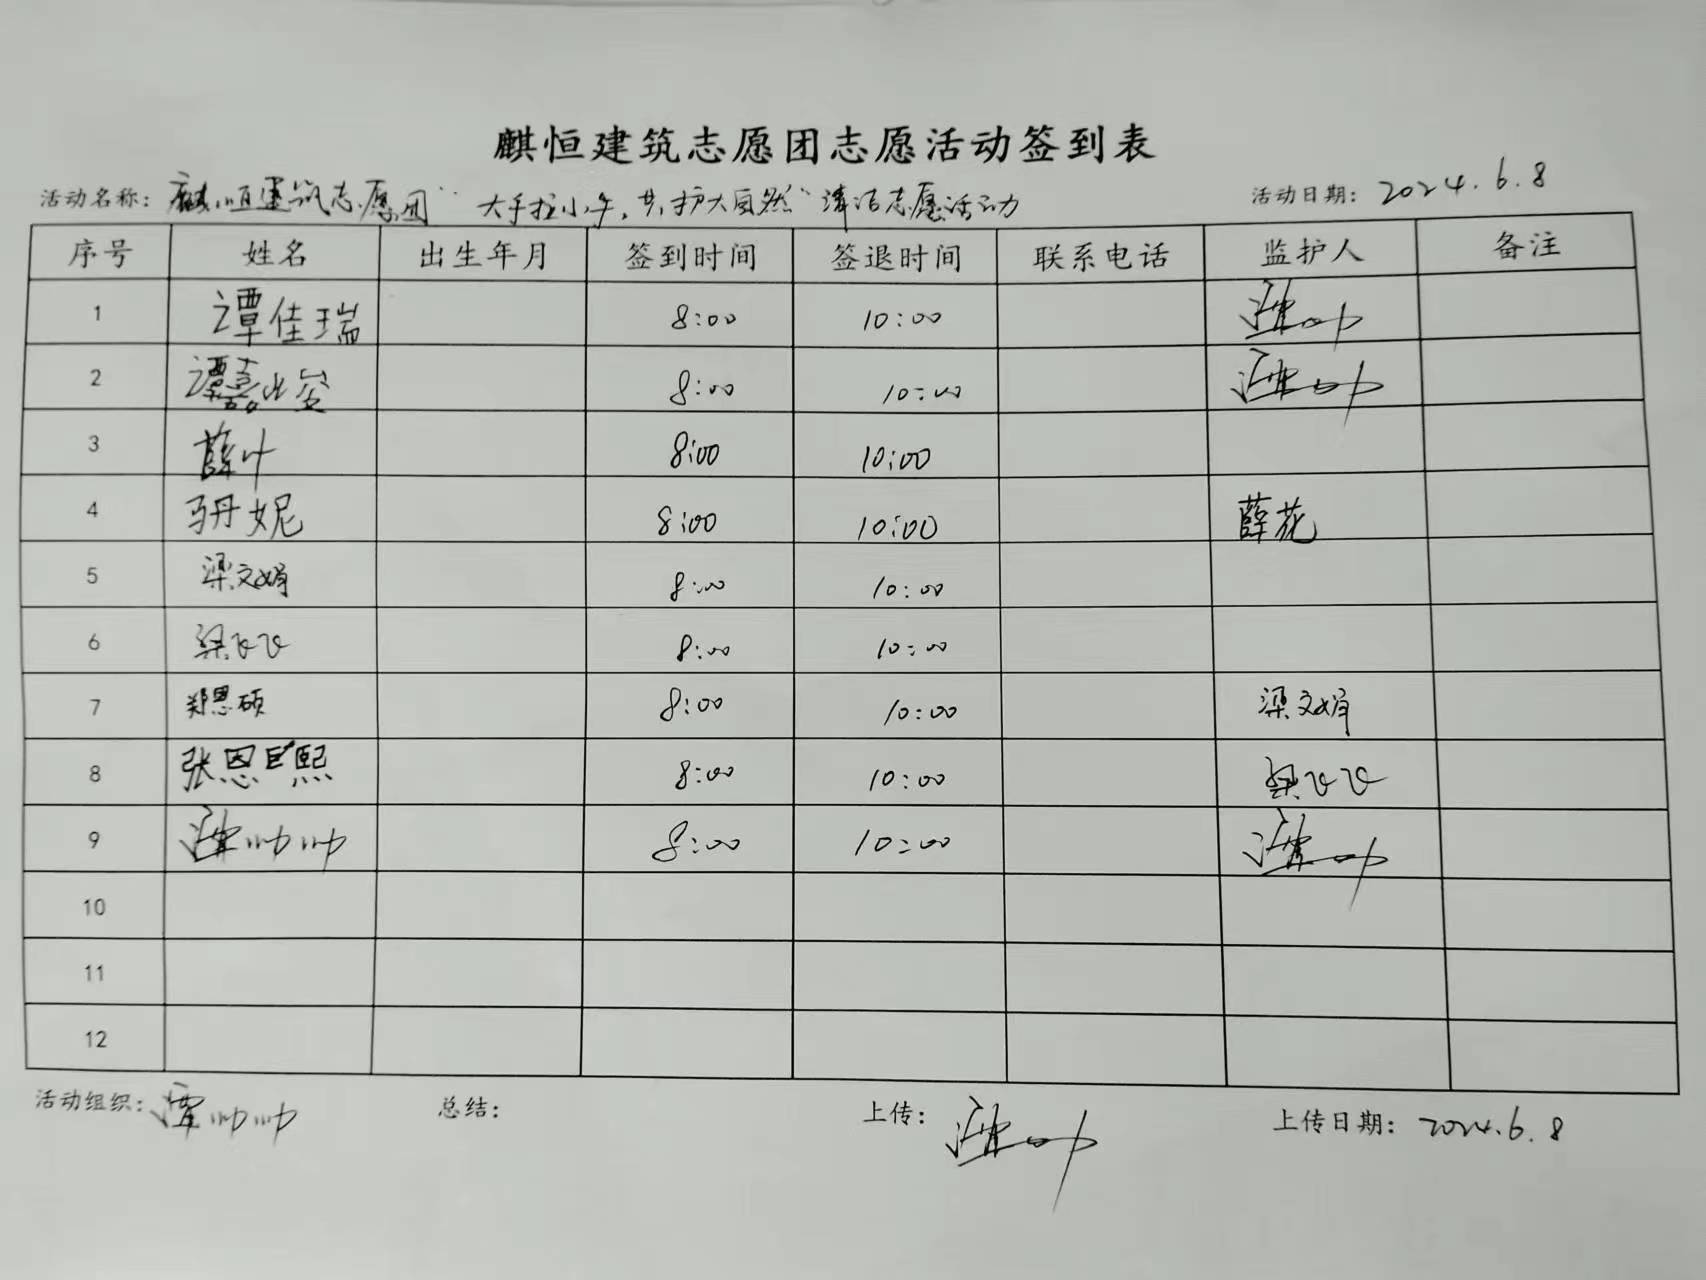 麒恒建筑志愿团志愿活动签到表
活动名称：麒恒建筑志愿团“大手拉小手，共护大自然”清洁志愿活动 活动日期：2024.6.8
序号 姓名 出生年月 签到时间 签退时间 联系电话 监护人 备注
1 谭佳瑞 8:00 10:00
2 谭嘉 8:00 10:00
3 薛叶 8:00 10:00
4 妮 8:00 10:00 薛花
5 梁文娟 8:00 10:00
6 梁飞飞 8:00 10:00
7 郑恩硕 8:00 10:00 梁文娟
8 张恩熙 8:00 10:00 梁飞飞
9 谭帅帅 8:00 10:00
10
11
12
活动组织：谭帅帅 总结： 上传： 上传日期：2024.6.8